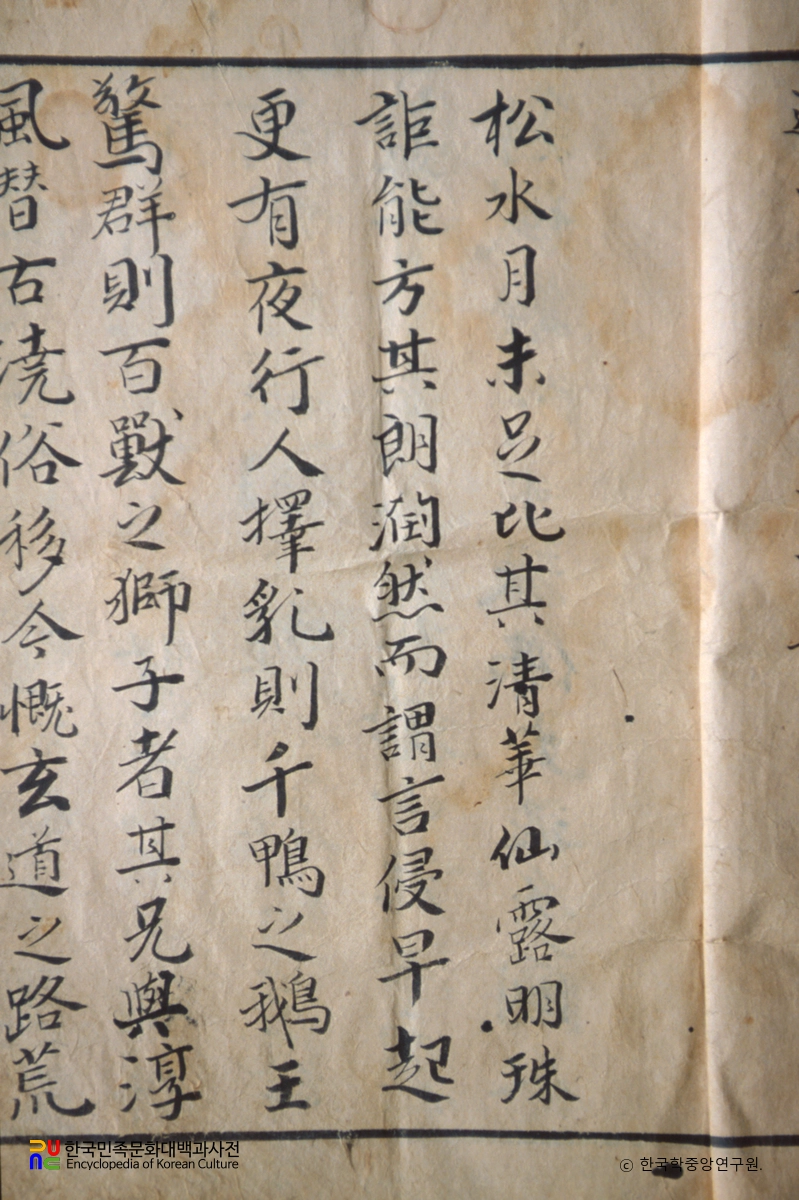 松水月未足比其清華仙露明珠
詎能方其朗潤然而謂言侵早起
更有夜行人擇乳則千鴨之鵝王
驚群則百獸之獅子者其兄與淳
風替古澆俗移今慨玄道之路荒
한국민족문화대백과사전
Encyclopedia of Korean Culture
© 한국학중앙연구원.